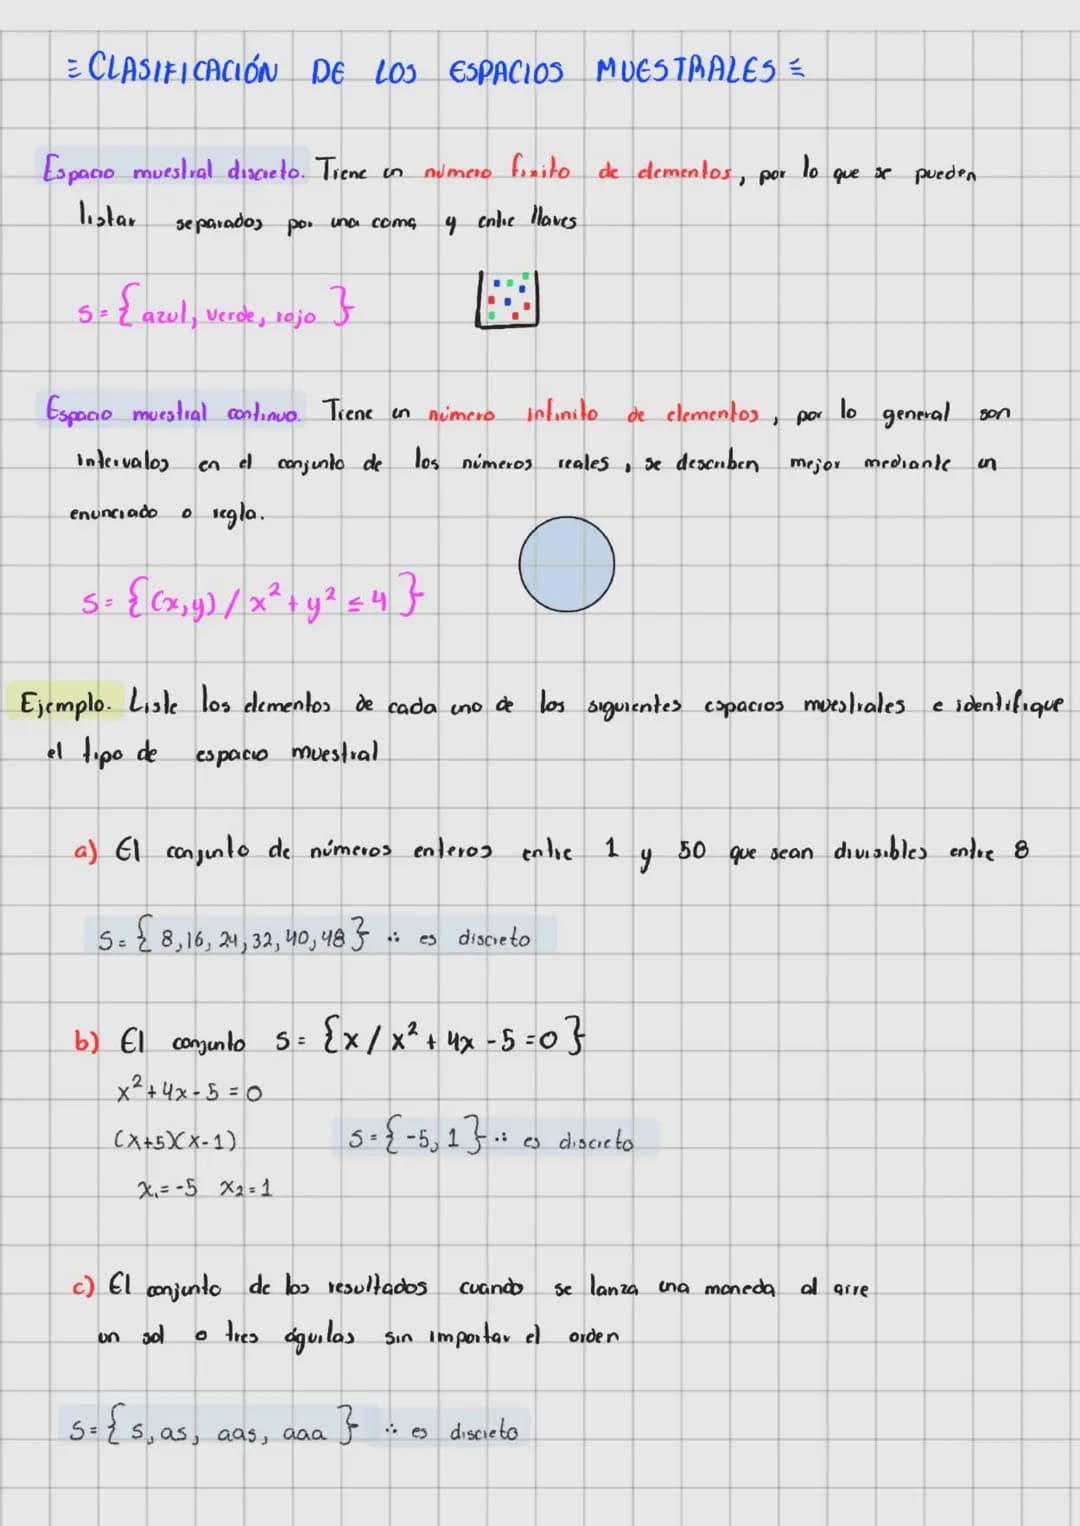 CLASIFICACIÓN DE LOS ESPACIOS MUESTRALES
Espacio muestral discreto. Tiene un número finito de elementos, por lo que se pueden
listar separados por una coma y entre llaves
S = { azul, verde, rojo }
Espacio muestral continuo. Tiene un número infinito de elementos, por lo general son
intervalos en el conjunto de los números reales, se describen mejor mediante un
enunciado o regla.
S = {(x,y) / x² + y² ≤ 4 }
Ejemplo. Liste los elementos de cada uno de los siguientes espacios muestrales e identifique
el tipo de espacio muestral
a) El conjunto de números enteros entre 1 y 50 que sean divisibles entre 8
S = { 8, 16, 24, 32, 40, 48 } ∴ es discreto
b) El conjunto S = {x / x² + 4x - 5 = 0 }
x² + 4x - 5 = 0
(x+5)(x-1)
S = { -5, 1 } ∴ es discreto
x₁ = -5 x₂ = 1
c) El conjunto de los resultados cuando se lanza una moneda al aire
un sol o tres águilas sin importar el orden
S = { s, as, aas, aaa } ∴ es discreto